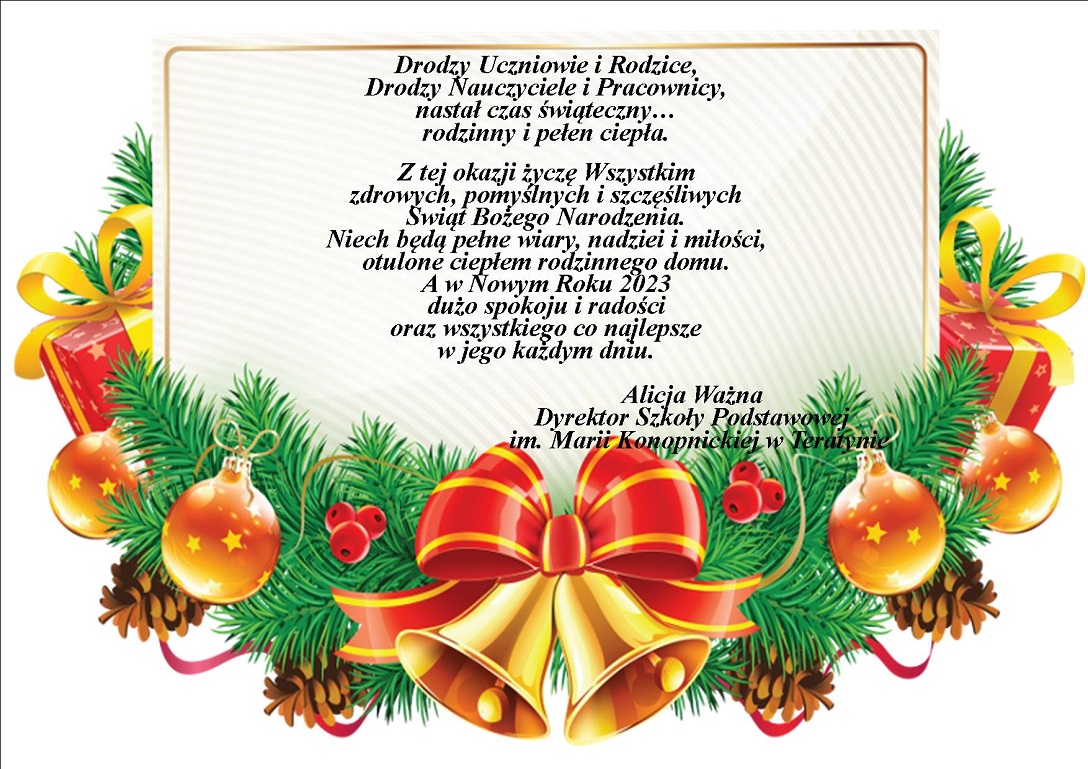 Drodzy Uczniowie i Rodzice,
Drodzy Nauczyciele i Pracownicy,
nastał czas świąteczny…
rodzinny i pełen ciepła.
Z tej okazji życzę Wszystkim
zdrowych, pomyślnych i szczęśliwych
Świąt Bożego Narodzenia.
Niech będą pełne wiary, nadziei i miłości,
otulone ciepłem rodzinnego domu.
A w Nowym Roku 2023
dużo spokoju i radości
oraz wszystkiego co najlepsze
w jego każdym dniu.
Alicja Ważna
Dyrektor Szkoły Podstawowej
im. Marii Konopnickiej w Teratynie